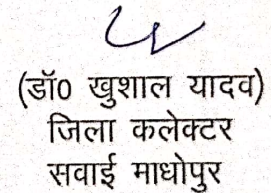 (डॉ0 खुशाल यादव)
जिला कलेक्टर
सवाई माधोपुर